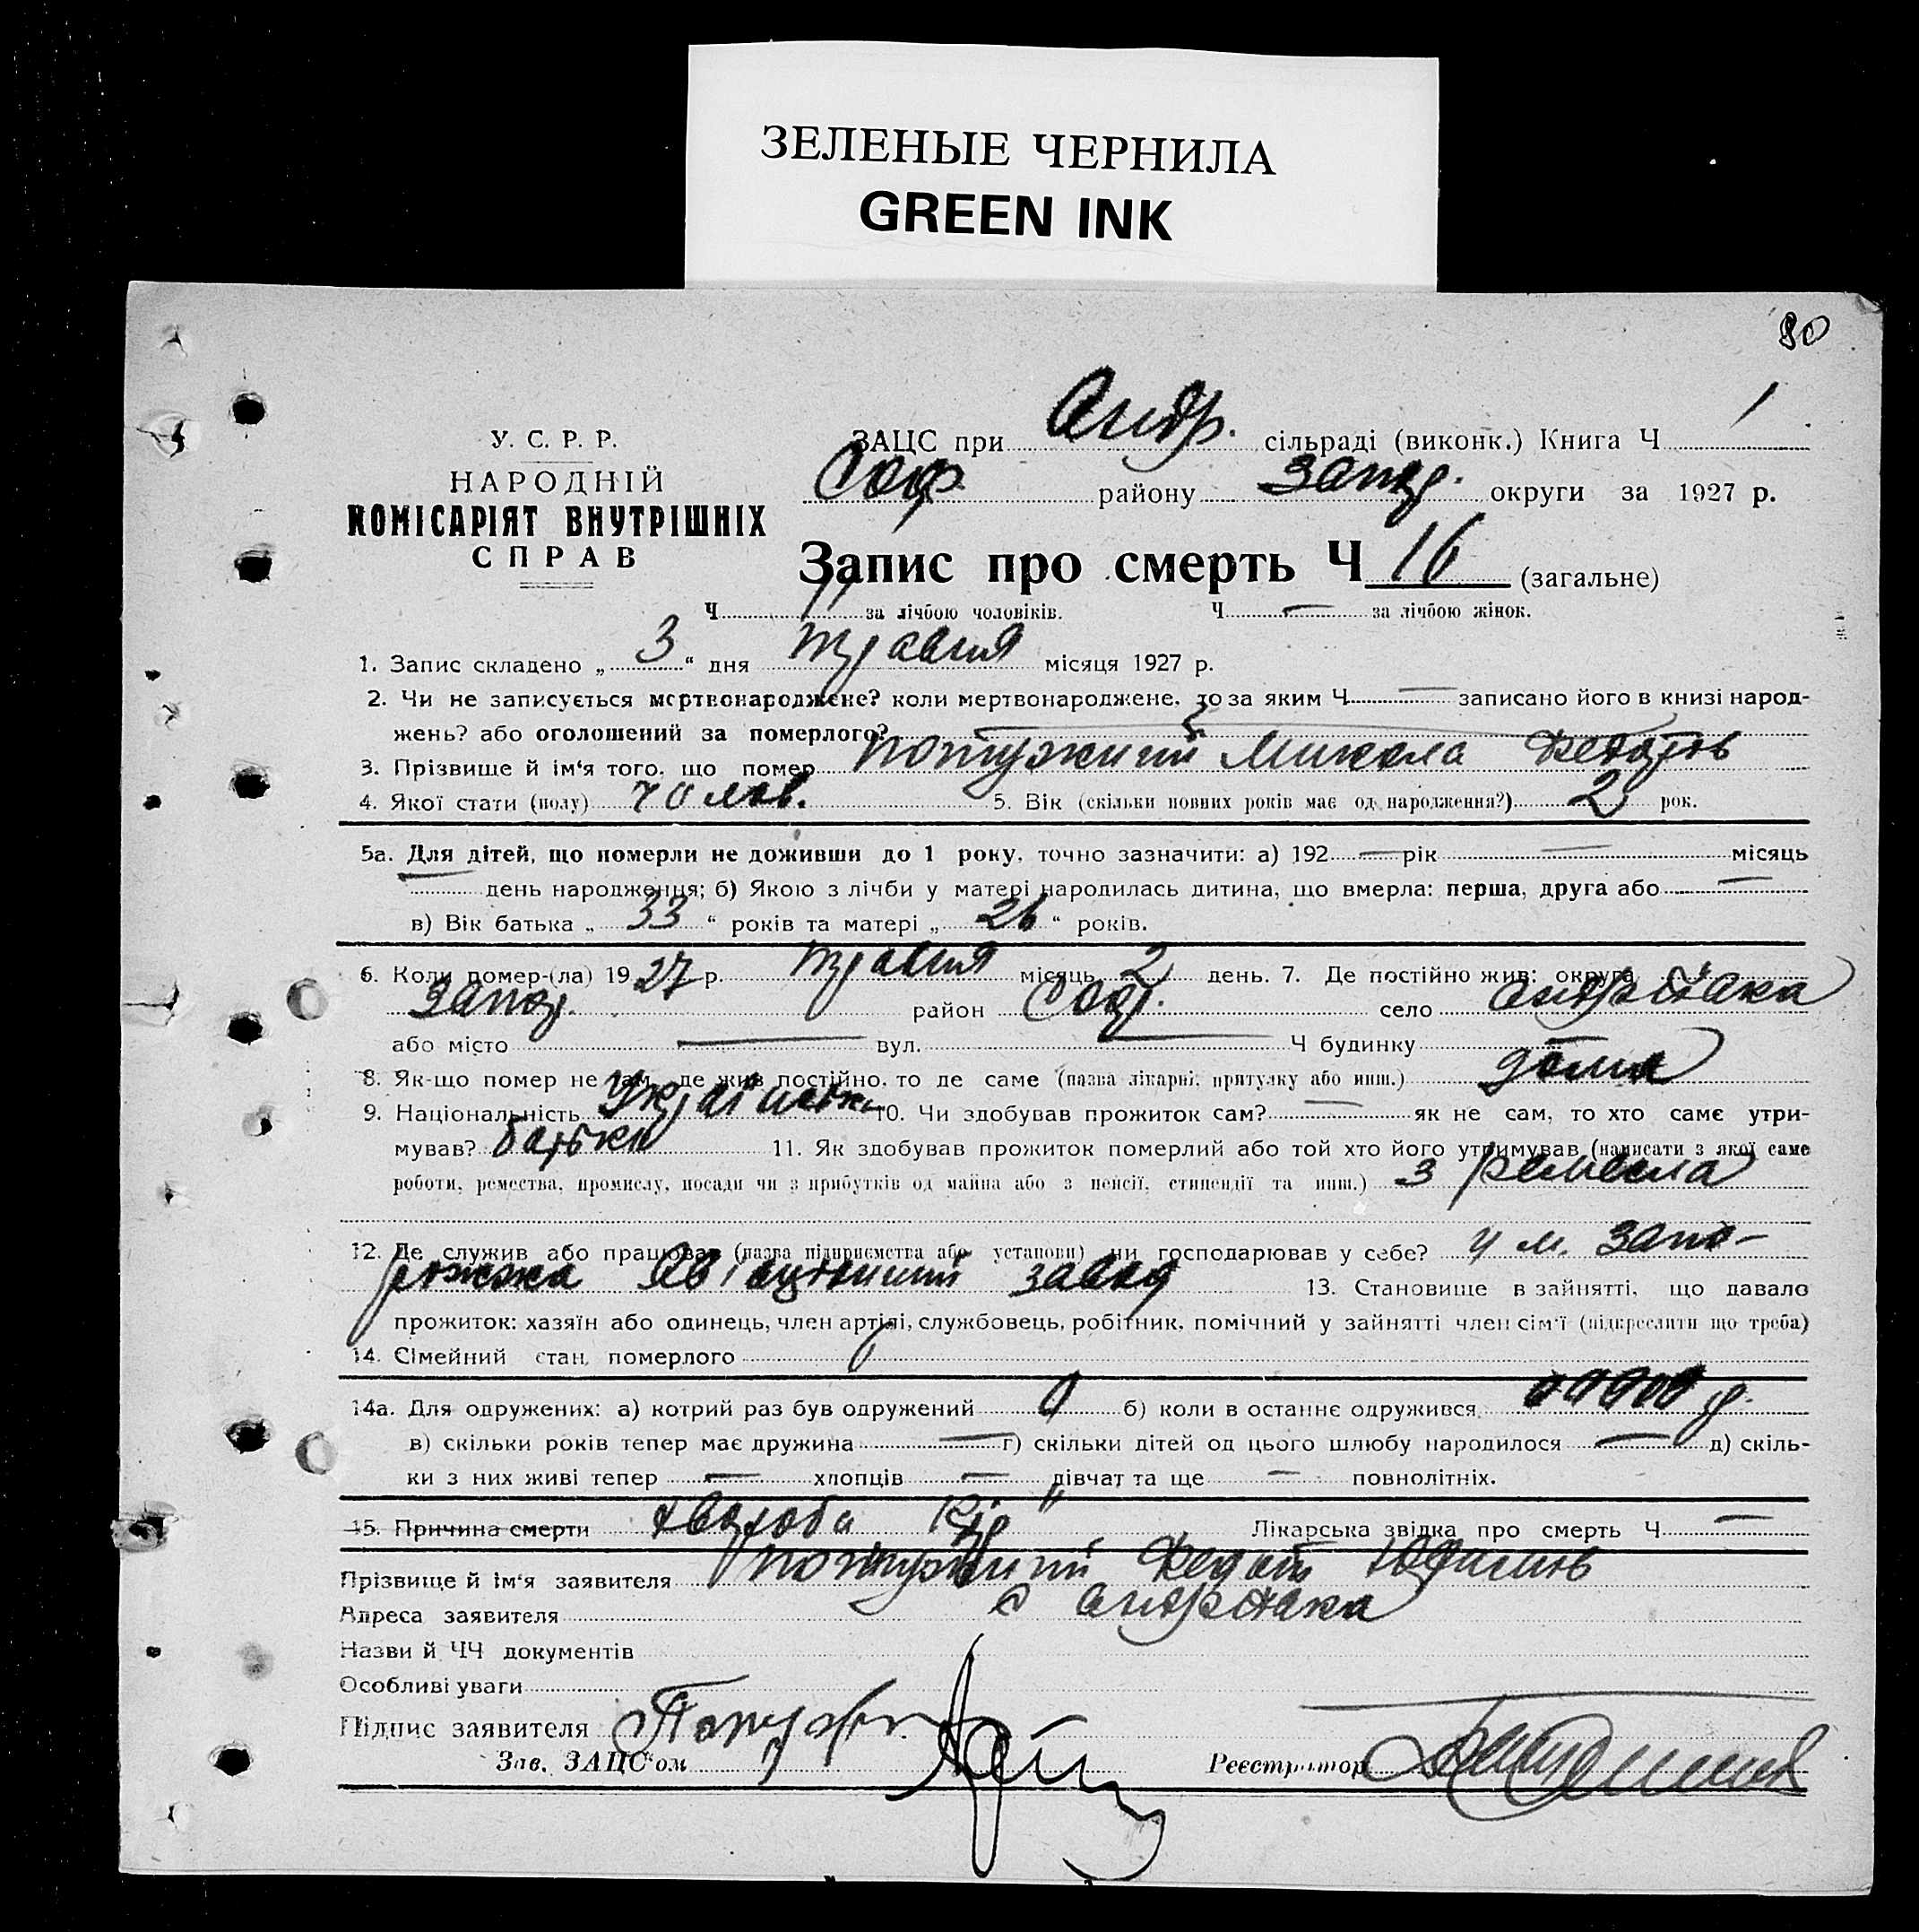 ЗЕЛЕНЫЕ ЧЕРНИЛА
GREEN INK
80
У. С. Р. Р.
НАРОДНІЙ
КОМІСАРІЯТ ВНУТРІШНІХ
СПРАВ
ЗАЦС при Андр. сільраді (виконк.) Книга Ч 1
Соф. району Запор. округи за 1927 р.
Запис про смерть Ч 16 (загальне)
Ч 11 за лічбою чоловіків. Ч — за лічбою жінок.
1. Запис складено „ 3 “ дня травня місяця 1927 р.
2. Чи не записується мертвонароджене? коли мертвонароджене, то за яким Ч — записано його в книзі народ-
жень? або оголошений за померлого?
3. Прізвище й ім'я того, що помер Потужний Микола Федотів
4. Якої стати (полу) чолов. 5. Вік (скільки повних років має од народження?) 2 рок.
5а. Для дітей, що померли не доживши до 1 року, точно зазначити: а) 192 — рік — місяць
— день народження; б) Якою з лічби у матері народилась дитина, що вмерла: перша, друга або —
в) Вік батька „ 33 “ років та матері „ 26 “ років.
6. Коли помер-(ла) 1927 р. травня місяць 2 день. 7. Де постійно жив: округа
Запор. район Соф. село Андріївка
або місто — вул. — Ч будинку
8. Як-що помер не там, де жив постійно, то де саме (назва лікарні, притулку або инш.) дома
9. Національність 10. Чи здобував прожиток сам? — як не сам, то хто саме утри-
мував? батьки 11. Як здобував прожиток померлий або той хто його утримував (написати з якої саме
роботи, ремества, промислу, посади чи з прибутків од майна або з пенсії, стипендії та инш.) з ремесла
12. Де служив або працював (назва підприємства або установи) чи господарював у себе? у м. Запо-
ріжжа Авіаційний завод 13. Становище в зайнятті, що давало
прожиток: хазяїн або одинець, член артілі, службовець, робітник, помічний у зайнятті член сім'ї (підкреслити що треба)
14. Сімейний стан померлого
14а. Для одружених: а) котрий раз був одружений б) коли в останнє одружився
в) скільки років тепер має дружина — г) скільки дітей од цього шлюбу народилося — д) скіль-
ки з них живі тепер — хлопців — дівчат та ще — повнолітніх.
15. Причина смерти хвороба Кір Лікарська звідка про смерть Ч —
Прізвище й ім'я заявителя Потужний Федот Юхимів
Адреса заявителя с Андріївка
Назви й ЧЧ документів
Особливі уваги
Підпис заявителя
Зав. ЗАЦС'ом Реєстратор